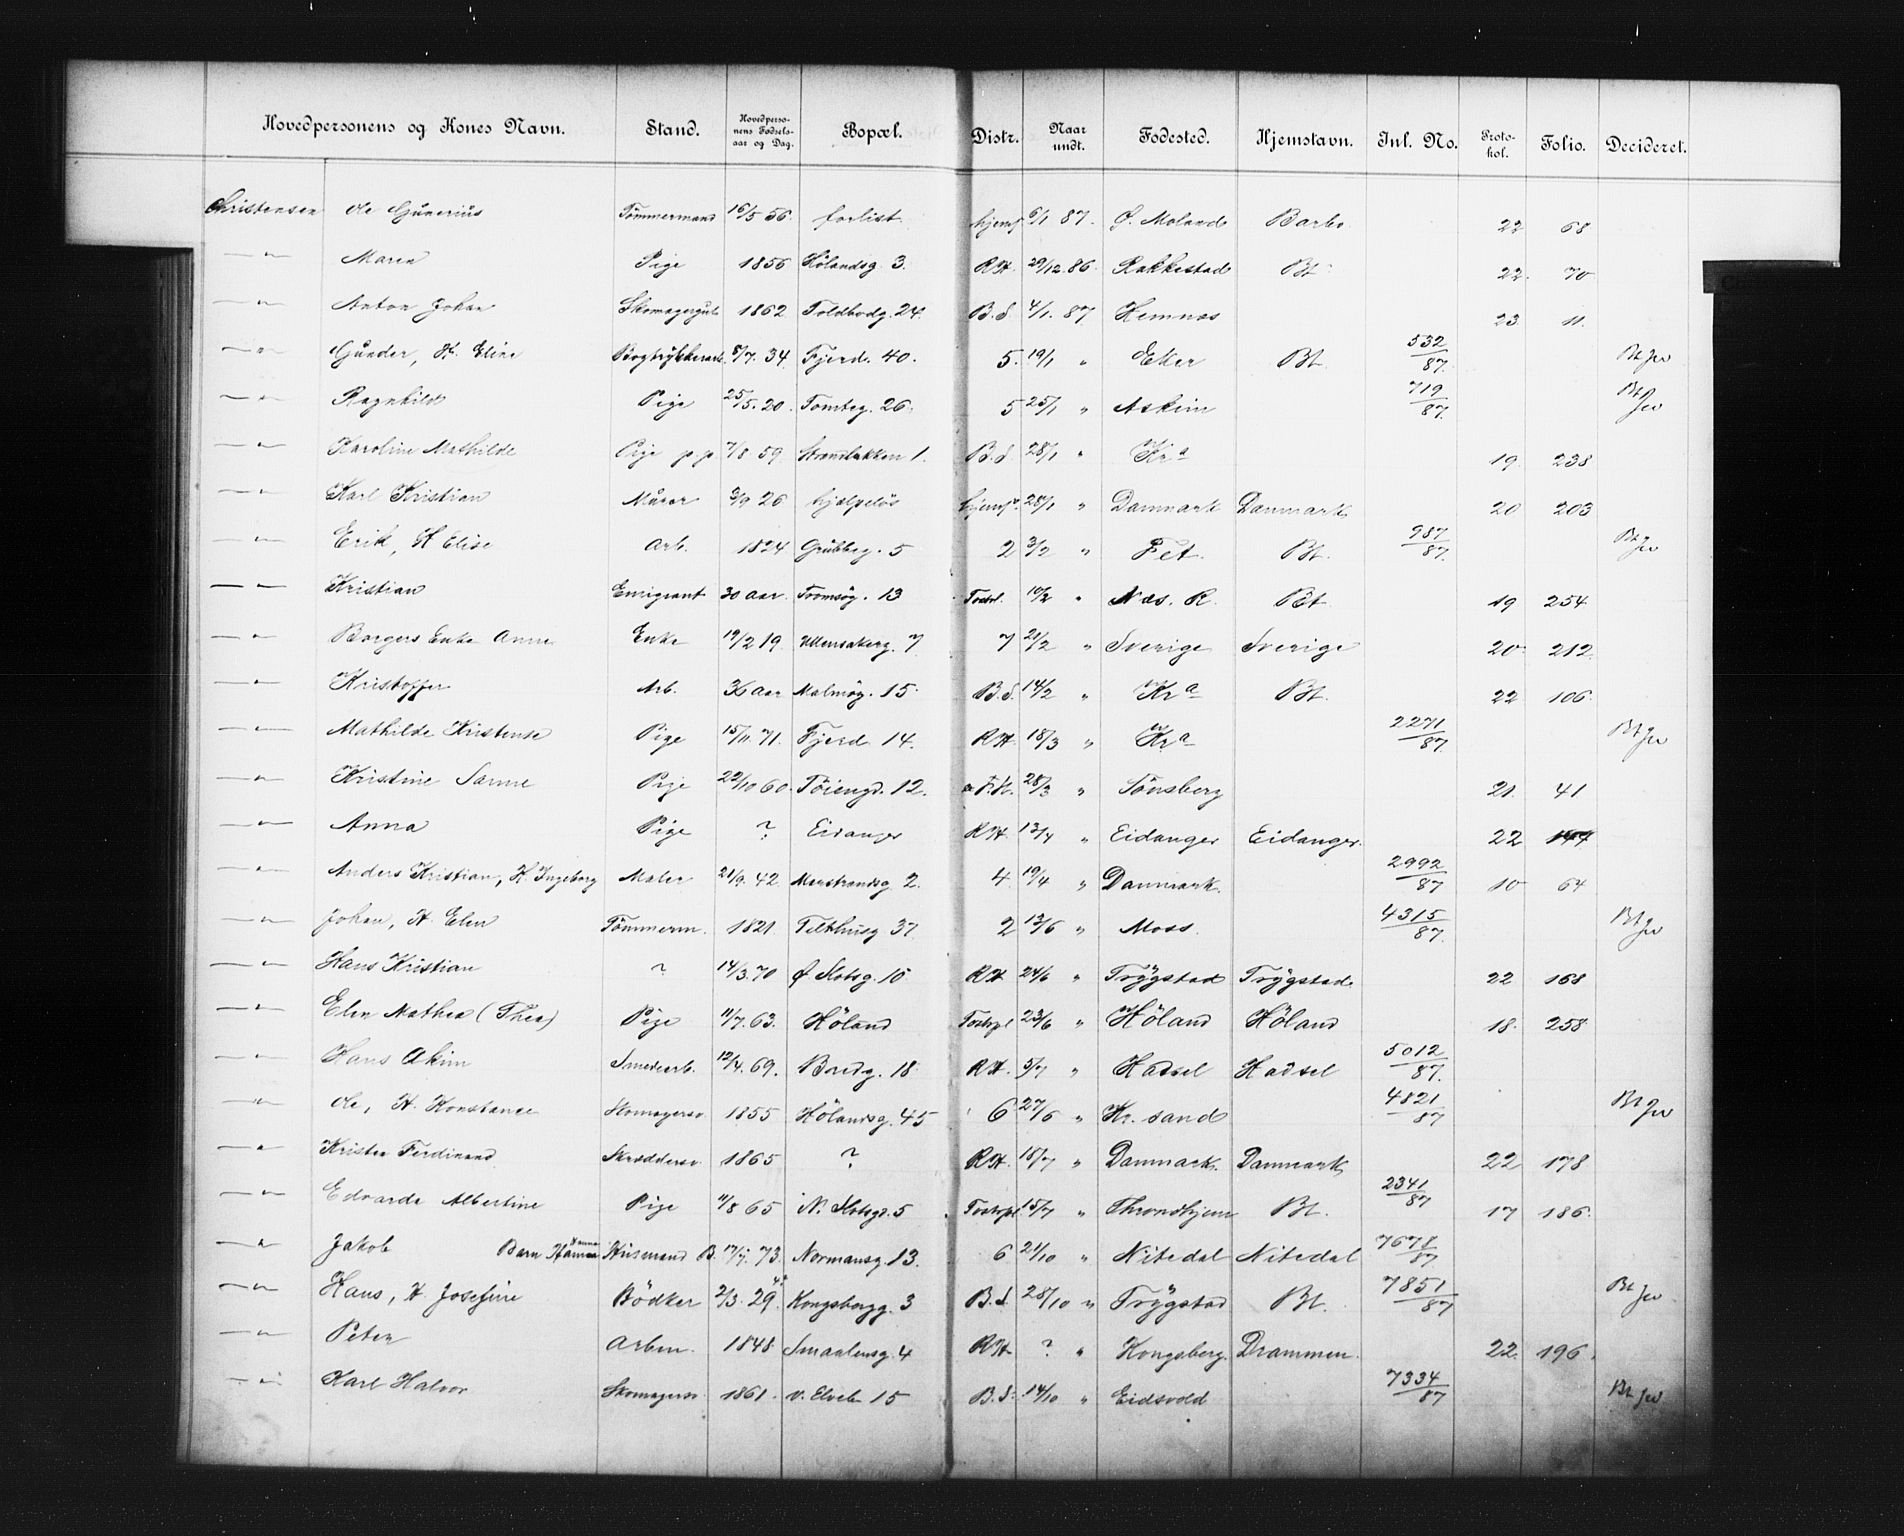 Hovedpersonens og Kones Navn. Stand. Hovedperso-nens Fødsels-aar og Dag. Bopæl. Distr. Naar undt. Fødested. Hjemstavn. Inl. No. Proto-kol. Folio. Decideret.
Christensen Ole Gunerius Tömmermand 16/5 56. forlist hjemf 6/1 87. Ø. Moland Barbo 22 68
—"— Maren Pige 1856 Hölandsg 3. RH. 29/12. 86. Rakkestad Bt 22. 70
—"— Anton Johan Skomagergut 1862 Toldbodg. 24. B.d. 4/1. 87 Hemnæs 23 11.
—"— Gunder, H. Eline Bogtrÿkkerarb. 8/7. 34 Fjerd. 40. 5. 19/1 " Eker Bt. 532/87. Bt Jw
—"— Ragnhild Pige 25/5. 20. Tomteg. 26. 5 25/1 " Askim 719/87. Bt Jw
—"— Karoline Mathilde Pige p.p. 7/8 59 1. B.d. 28/1 " Kra 19. 238
—"— Karl Kristian Murer 3/9 26 hjælpelös hjemf. 28/1 " Danmark Danmark 20 203
—"— Erik, H Elise Arb. 1824 Grubbeg. 5 2 3/2 " Fet. Bt. 987/87. Bt Jw
—"— Kristian Emigrant 30 aar. Tromsög. 13 10/2 " Næs. R. Bt 19 254
—"— Borgers Enke Anne Enke 19/2 19. Ullensakerg. 7 7 21/2 " Sverige Sverige 20. 212.
—"— Kristoffer Arb. 36 aar Malmög. 15. B.d. 14/2 " Kra Bt. 22 106.
—"— Mathilde Kristense Pige 15/11. 71. Fjerd 14. RH. 18/3 " Kra 2271/87. Bt Jw
—"— Kristine Sanne Pige 22/10 60. Töiengd. 12. 28/3 " Tönsberg 21. 41
—"— Anna Pige ? Eidanger RH. 13/4 " Eidanger Eidanger. 22 144
—"— Anders Kristian, H. Ingeborg Maler 21/9. 42. Marstrandsg 2. 4. 19/4 " Danmark. 2992/87 10 64
—"— Johan, H. Elen Tömmerm. 1821. Telthusg 37. 2 13/6 " Moss. 4315/87. Bt Jw
—"— Hans Kristian ? 14/3. 70 Ø Slotsg. 10 RH 24/6 " Trÿgstad Trÿgstad. 22 168
—"— Elen Mathea (Thea) Pige 11/7. 63. Höland 23/6 " Höland Höland 18. 258
—"— Hans Akim Smedearb. 12/4. 69. Bredg. 18. RH. 5/7 " Hadsel Hadsel 5012/87.
—"— Ole, H. Konstance Skomagersv. 1855 Hölandsg. 45 6 27/6 " Kr. sand 4821/87 Bt Jw
—"— Kristen Ferdinand Skræddersv. 1865 ? RH. 18/7 " Danmark. Danmark 22 178
—"— Edvarda Albertine Pige 11/8 65 N. Slotsgd. 5 15/7 " Throndhjem Bt. 2341/87 17 186.
—"— Jakob Barn Hanna Husmand B. 17/7. 73. Normansg. 13. 6 21/10 " Nitedal Nitedal 7678/87
—"— Hans, H. Josefine Bödker 2/3. 29. Kongsbergg. 3 B.d. 28/10 " Trÿgstad Bt. 7851/87 Bt Jw
—"— Peter Arbm. 1848 Smaalensg. 4 RH ? " Kongsberg. Drammen. 22. 196.
—"— Karl Halvor Skomagersv. 1861. v. Elveb. 15 B.d. 14/10 " Eidsvold 7334/87 Bt Jw